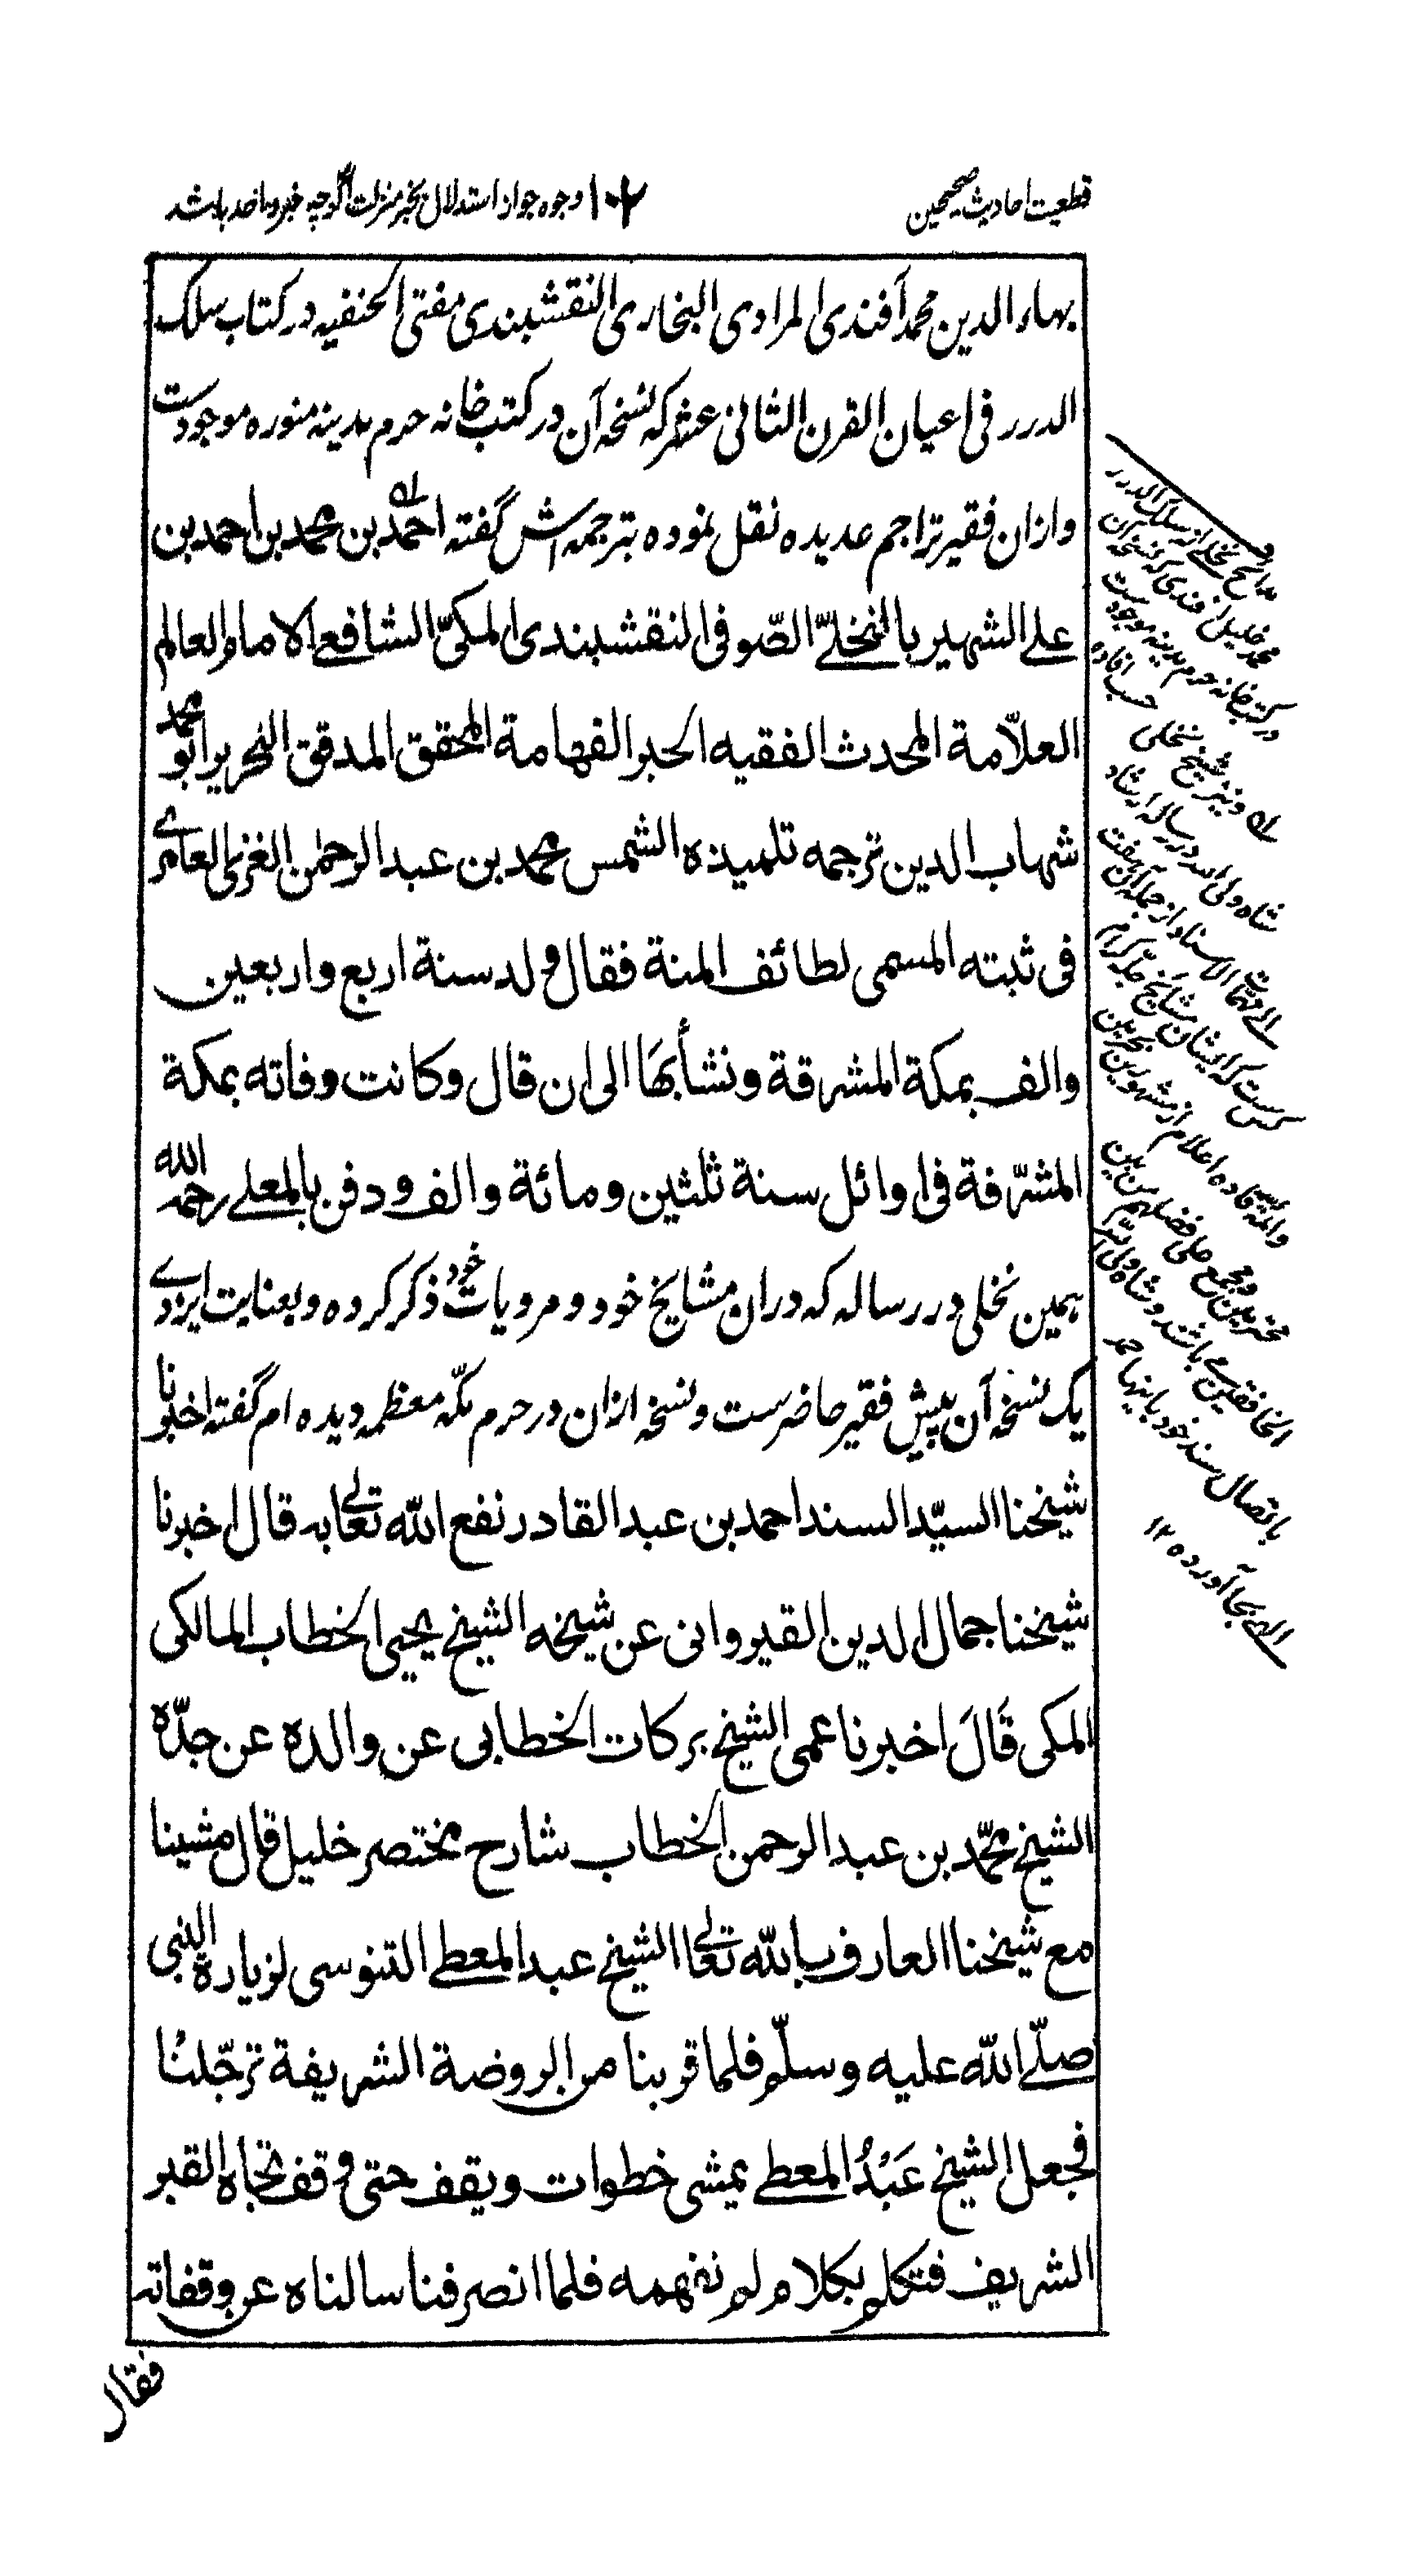 قطعیت احادیث صحیحین
۱۰۲
وجوه جواز استدلال بخبر منزلت اگرچه خبر واحد باشد
بهاء الدین محمد آفندی المرادی البخاری النقشبندی مفتی الحنفیه در کتاب سلک
الدرر فی اعیان القرن الثانی عشر که نسخه آن در کتب خانه حرم مدینه منوره موجودست
وازان فقیر تراجم عدیده نقل نموده بترجمه اش گفته احمد بن محمد بن احمد بن
علی الشهیر بالنخلیّ الصّوفی النقشبندی المکیّ الشافعی الامام العالم
العلاّمة المحدث الفقیه الحبر الفهامة المحقق المدقق النحریر ابو محمد
شهاب الدین ترجمه تلمیذه الشمس محمد بن عبد الرحمٰن الغزی العامری
فی ثبته المسمی لطائف المنة فقال ولد سنة اربع واربعین
والف بمکة المشرقة ونشأ بهَا الی ان قال وکانت وفاته بمکة
المشرّفة فی اوائل سنة ثلثین ومائة والف ودفن بالمعلی رحمه الله
همین نخلی در رساله که دران مشایخ خود و مرویات خود ذکر کرده و بعنایت ایزدی
یک نسخه آن پیش فقیر حاضرست و نسخه ازان در حرم مکّه معظمه دیده ام گفته اخبرنا
شیخنا السیّد السند احمد بن عبد القادر نفع الله تعالی به قال اخبرنا
شیخنا جمال الدین القیروانی عن شیخه الشیخ یحیی الخطاب المالکی
المکی قَالَ اخبرنا عمی الشیخ برکات الخطابی عن والده عن جدّه
الشیخ محمّد بن عبد الرحمن الخطاب شارح مختصر خلیل قال مشینا
مع شیخنا العارف بالله تعالی الشیخ عبد المعطی التنوسی لزیارة النبی
صلّی الله علیه وسلّم فلما قربنا من الروضة الشریفة ترجّلنا
فجعل الشیخ عَبْدُ المعطی یمشی خطوات ویقف حتی وقف تجاه القبر
الشریف فتکلم بکلام لم نفهمه فلما انصرفنا سالناه عن وقفاته
فقال
مدائح نخلی از سلک الدرر
محمد خلیل آفندی که نسخه آن
در کتب خانه حرم مدینه موجودست
و نیز شیخ نخلی حسب افاده
شاه ولی الله در رساله ارشاد
الی مهمّات الاسناد از جمله آن هفت
کس ست که ایشان مشایخ جلّه کرام
و ائمّه قاده اعلام از مشهورین بحرمین
محترمین و مجمع علی فضلهم من بین
الخافقین می باشند و شاه ولی الله
باتصال سند خود باینها حمد
الهی بجا آورده ۱۲